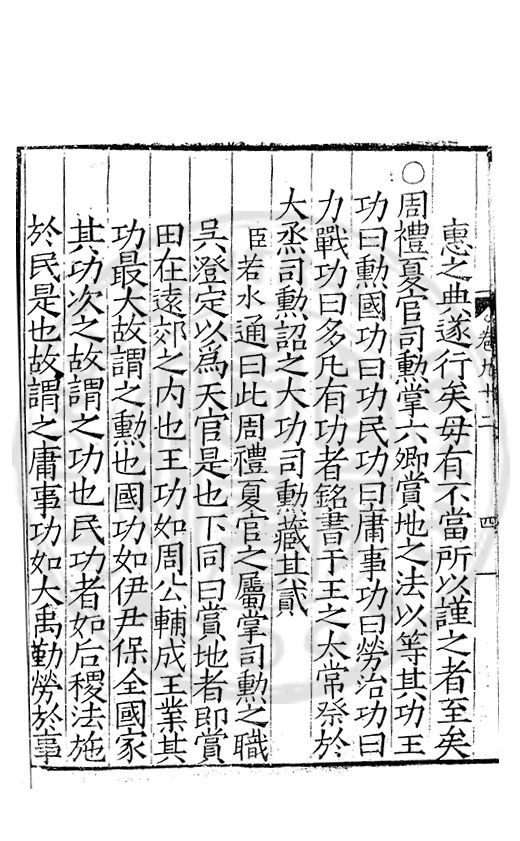 卷九十二
四
惠之典遂行矣毋有不當所以謹之者至矣
〇周禮夏官司勲掌六卿賞地之法以等其功王
功曰勲國功曰功民功曰庸事功曰勞治功曰
力戰功曰多凡有功者銘書于王之太常祭於
大烝司勲詔之大功司勲藏其貳
臣若水通曰此周禮夏官之屬掌司勲之職
吳澄定以為天官是也下同曰賞地者即賞
田在遠郊之内也王功如周公輔成王業其
功最大故謂之勲也國功如伊尹保全國家
其功次之故謂之功也民功者如后稷法施
於民是也故謂之庸事功如大禹勤勞於事